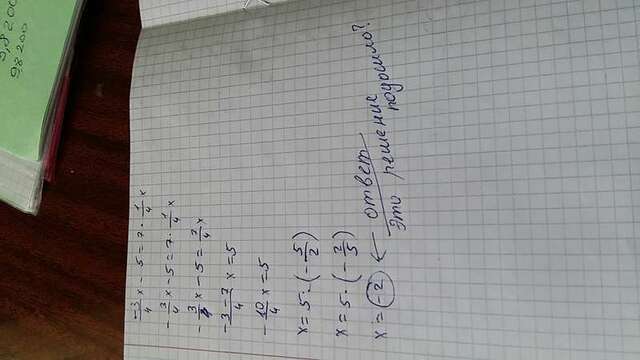 9,8200
98200
-3/4 x - 5 = 7 · 1/4 x
- 3/4 x - 5 = 7 · 1/4 x
- 3/4 x - 5 = 7/4 x
-3-7/4 x = 5
- 10/4 x = 5
x = 5 : (- 5/2)
x = 5 · (- 2/5)
x = -2 ← ответ
Это решение
подошло?